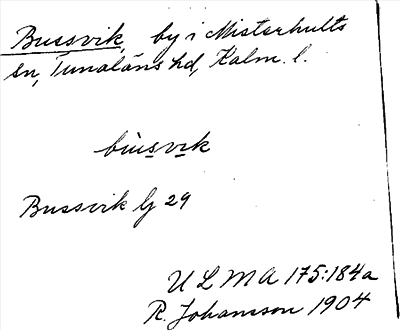 Bussvik, by i Misterhults
sn, Tunaläns hd, Kalm. l.
bùsvik
Bussvik lg 29
ULMA 175:184a
R. Johansson 1904